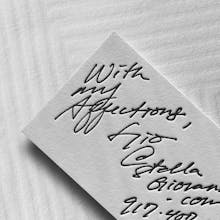 With
my
Affections,
Gio
Estella
Giovan
com
917.400